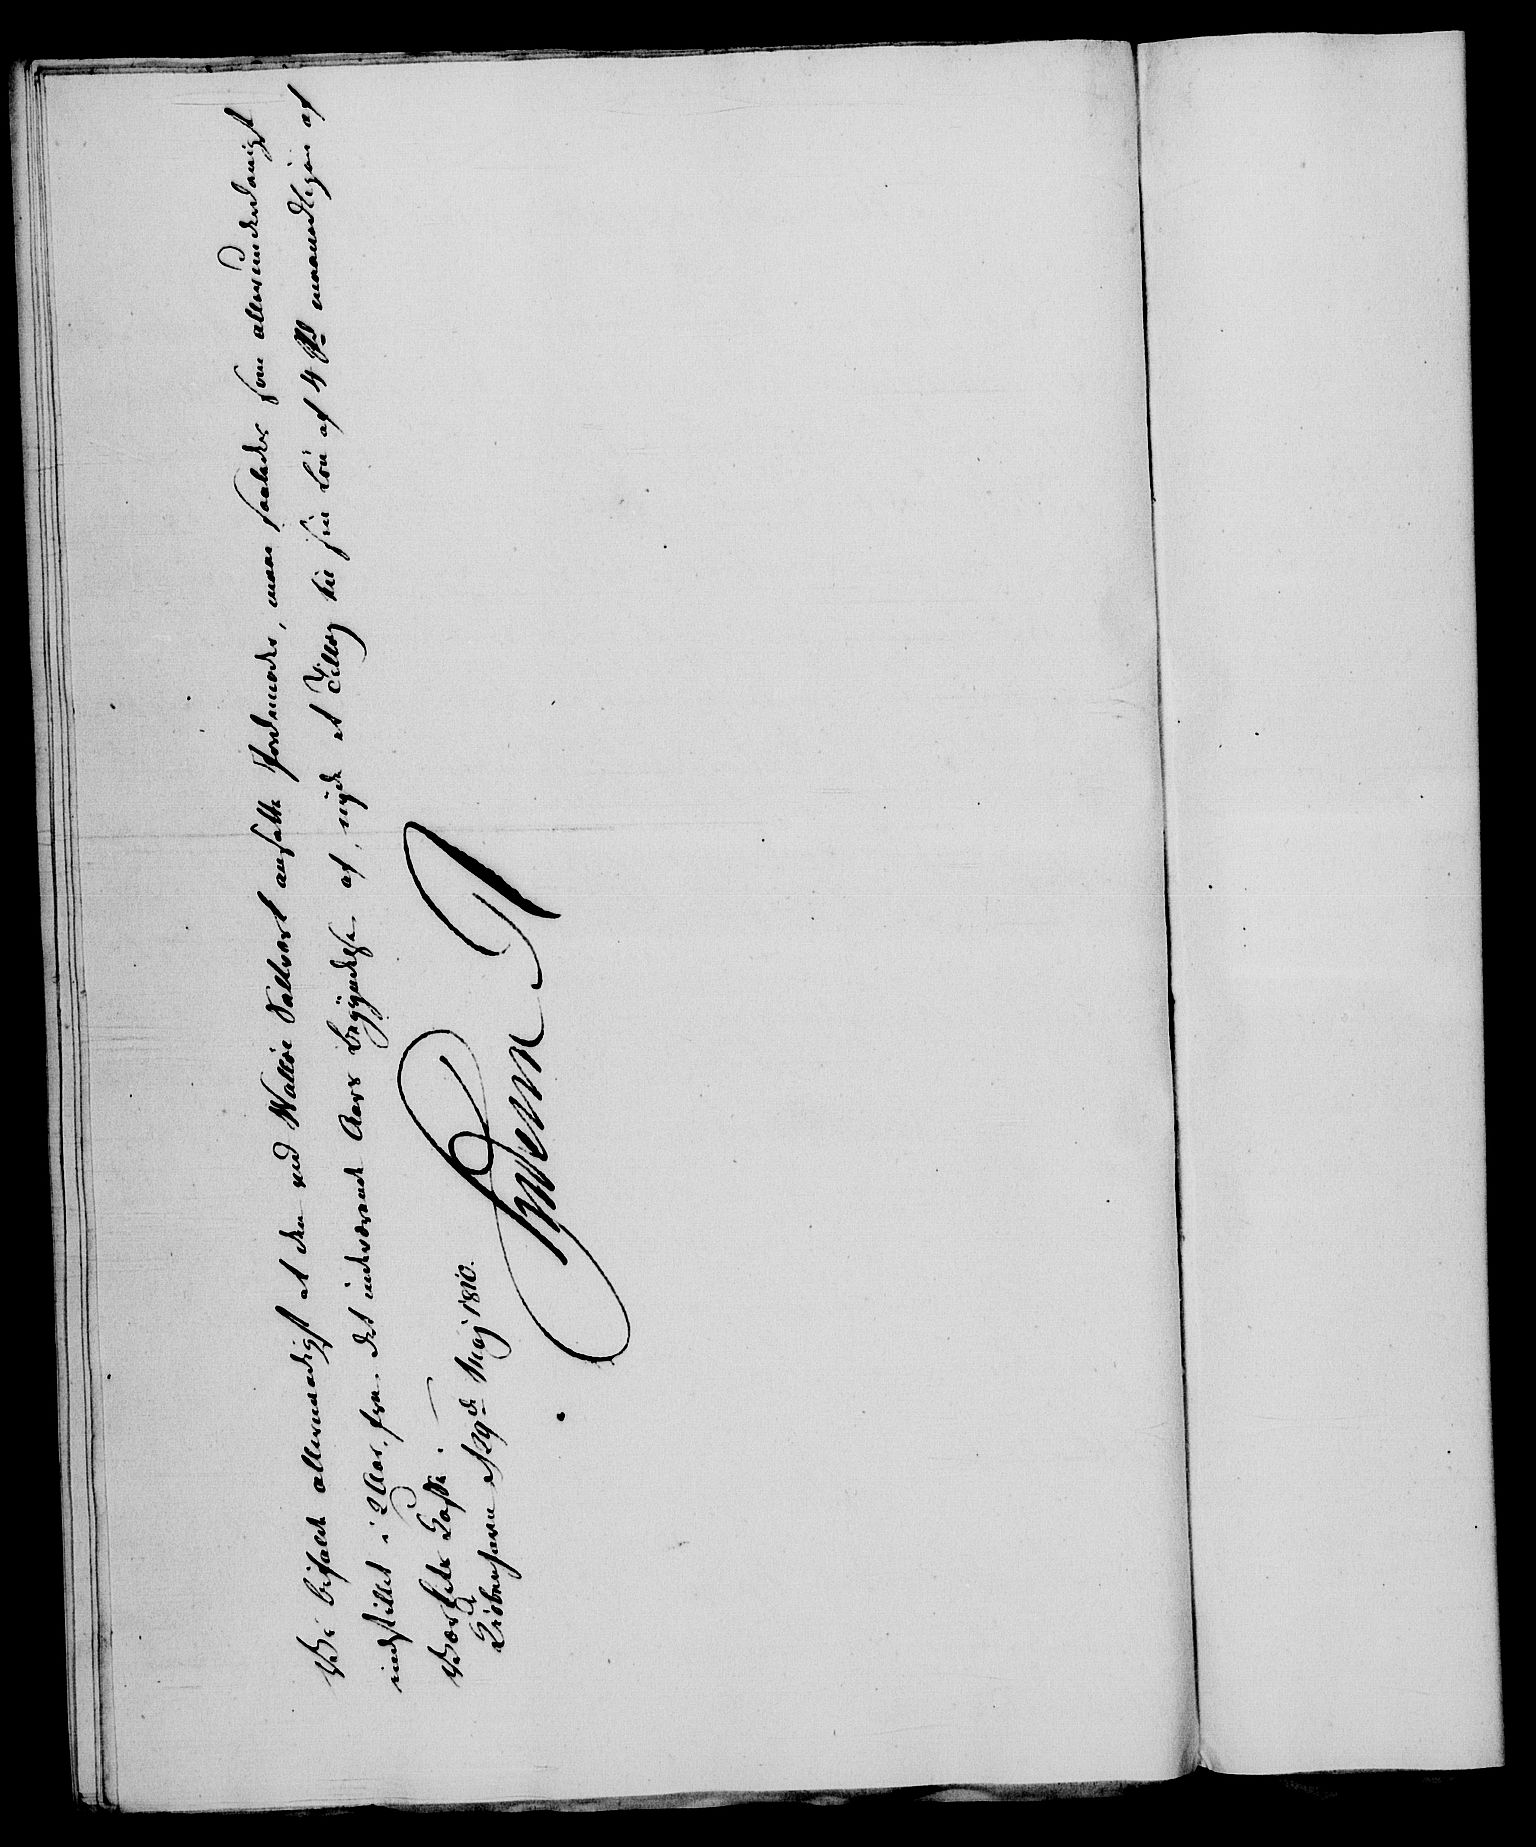 Vi bifalde allernaadigst at den ved Walløe Saltværk ansatte Fændrnes, maae saaledes som allerunderdanigst
indstillet i 2 Aar, fra det indeværende Aars Begyndelse af, nyde et Tillæg til sin Løn af 4 Rd maanedligen af
Værkets Casse.
Kiøbenhavn d 29de Maj 1810.
Frederik R